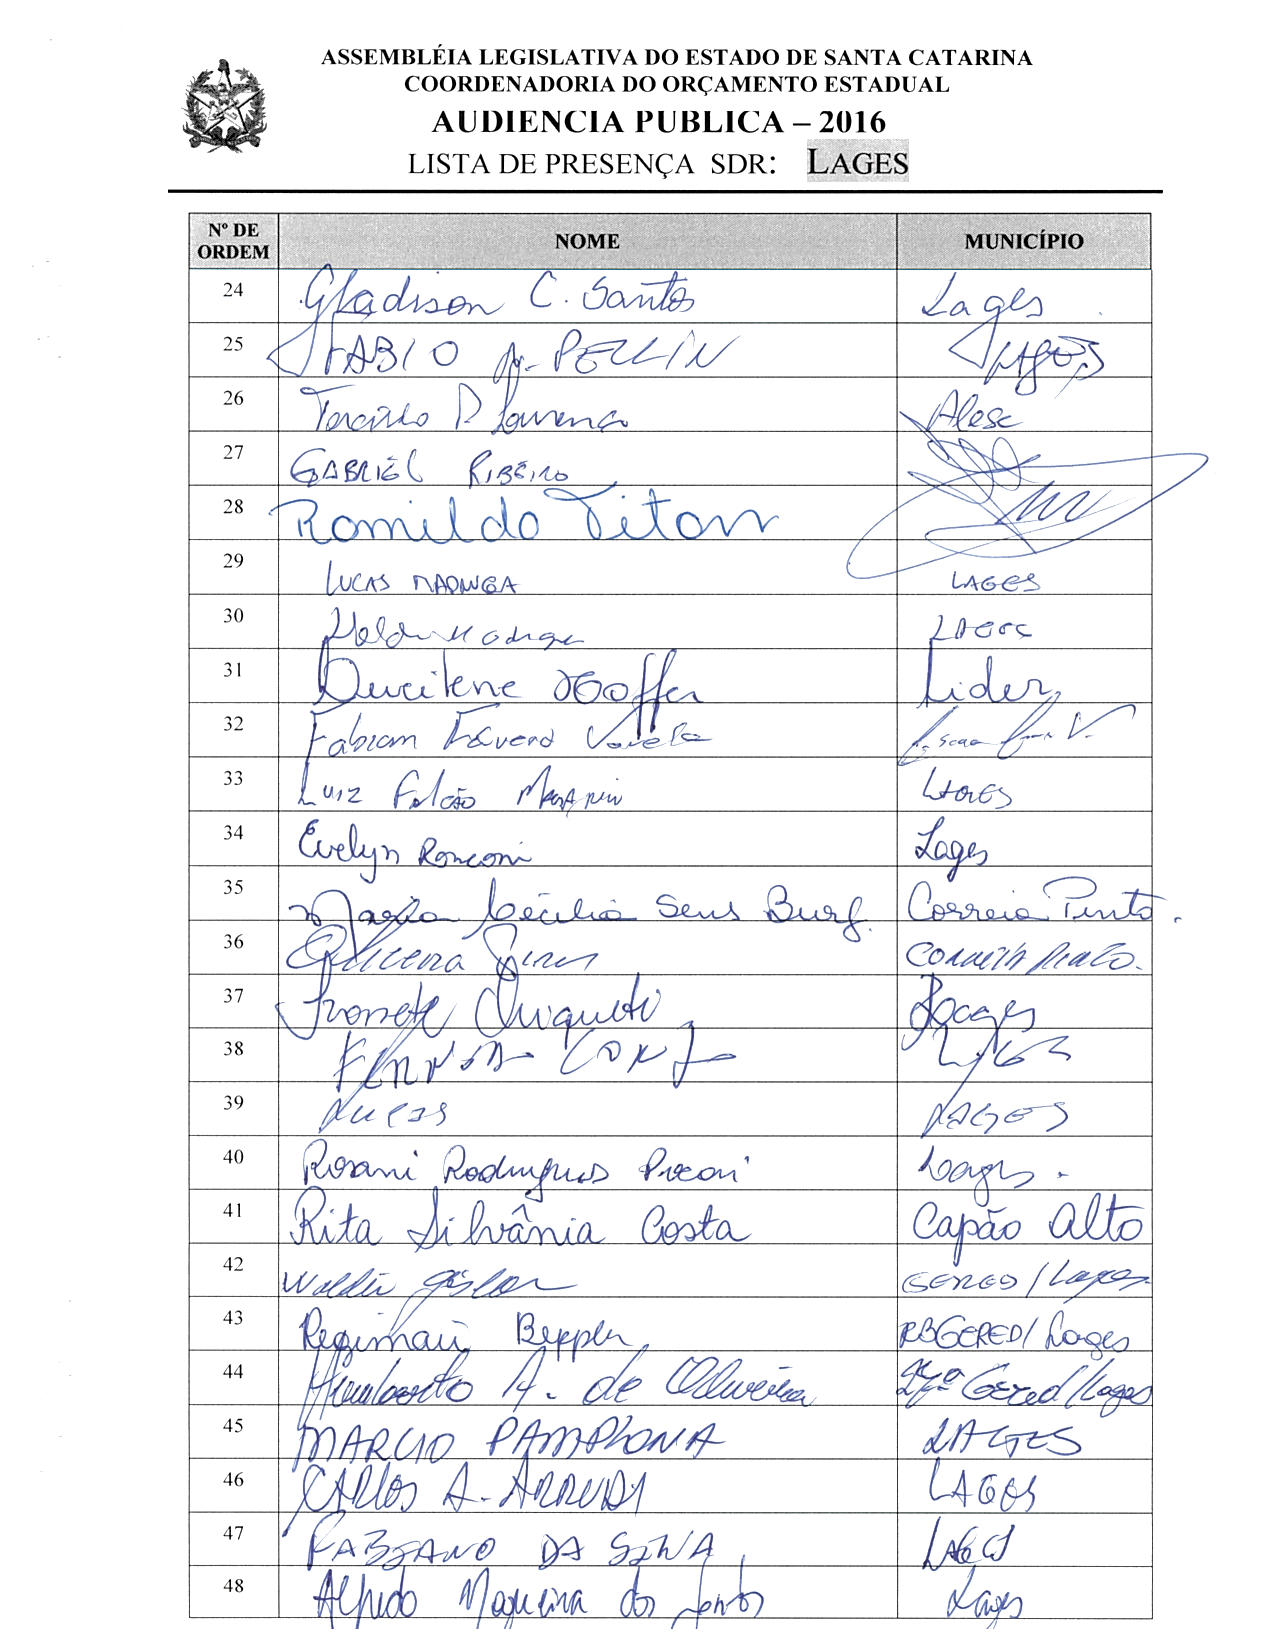 ASSEMBLÉIA LEGISLATIVA DO ESTADO DE SANTA CATARINA
COORDENADORIA DO ORÇAMENTO ESTADUAL
AUDIENCIA PUBLICA – 2016
LISTA DE PRESENÇA SDR: LAGES
Nº DE ORDEM NOME MUNICÍPIO
24 Gladison C. Santos Lages
25 FABIO A. PELLIN LAGES
26 Tarcísio Lourenço Alesc
27 GABRIEL RIBEIRO
28 Romildo Titon
29 LUCAS LAGES
30 LAGES
31 Lider
32 Fabiam Varela
33 LUIZ Falcão LAGES
34 Evelyn Ronconi Lages
35 Maria Cecilia Sens Burg. Correia Pinto.
36 CORREIA PINTO.
37 Ivonete Chiqueti Lages
38 LAGES
39 Lucas LAGES
40 Rosani Rodrigues Lages.
41 Rita Silvânia Costa Capão Alto
42 GERED/Lages
43 Beppler GERED/Lages
44 Humberto A. de Oliveira 27ª Gered/Lages
45 MARCIO PAMPLONA LAGES
46 CARLOS A. ARRUDA LAGES
47 FABIANO DA SILVA LAGES
48 Alfredo dos Santos Lages